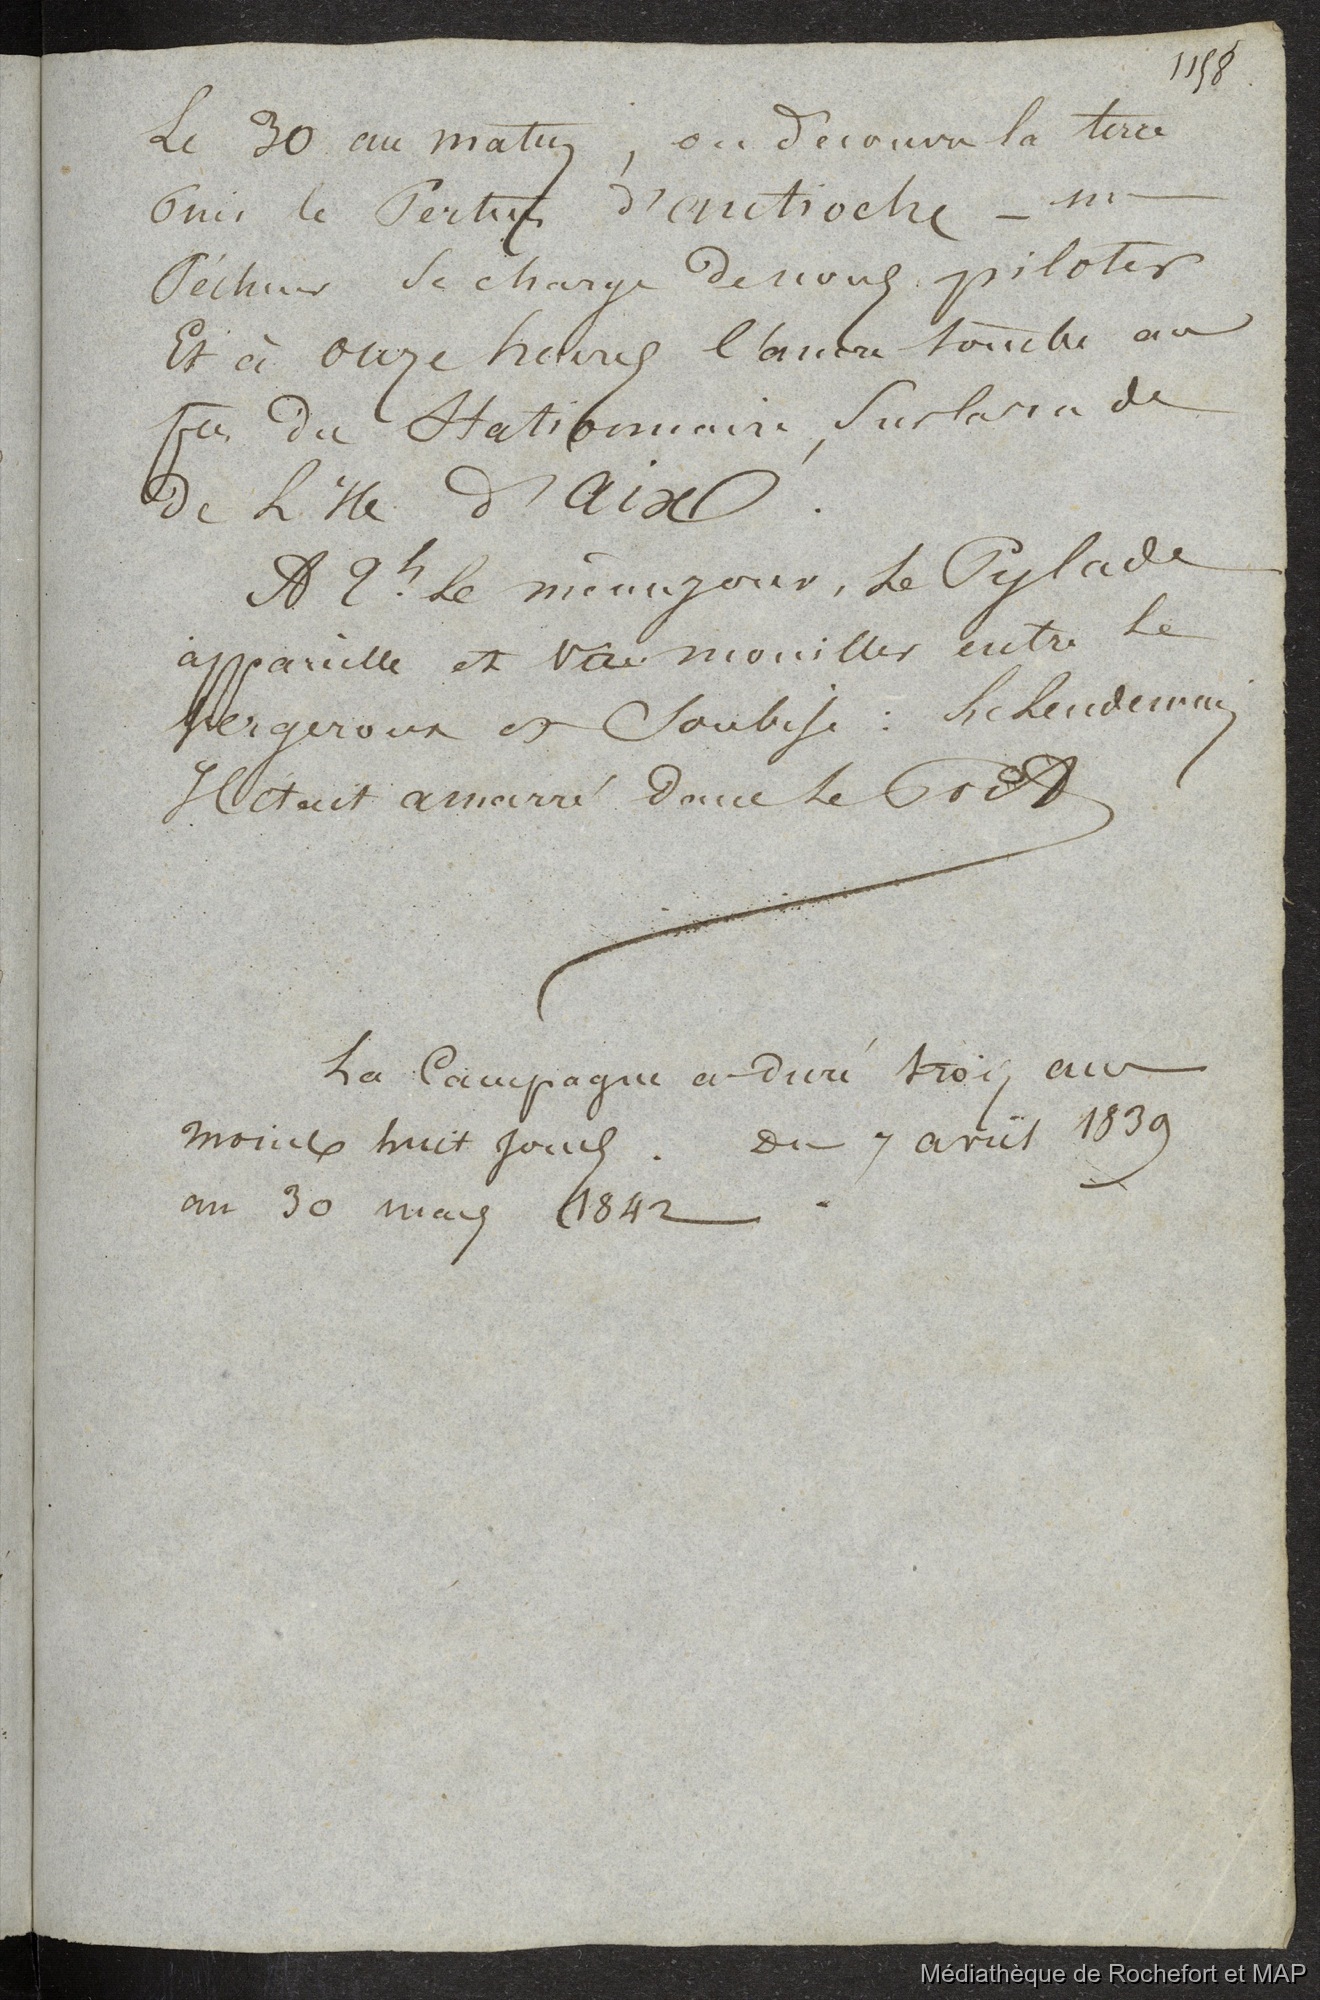 1158
Le 30 au matin, on découvre la terre
Puis le Pertuis d'antioche – un
Pêcheur se charge de nous piloter
Et à onze heures l'ancre tombe au
feu du Stationnaire, sur la rade
de L'Ile d'Aix.
A 2h. le même jour, le Pylade
appareille et va mouiller entre le
vergeroux et Soubise : le lendemain
Il était amarré dans le Port
La Campagne a duré trois ans
moins huit jours. Du 7 avril 1839
au 30 mars 1842.
Médiathèque de Rochefort et MAP